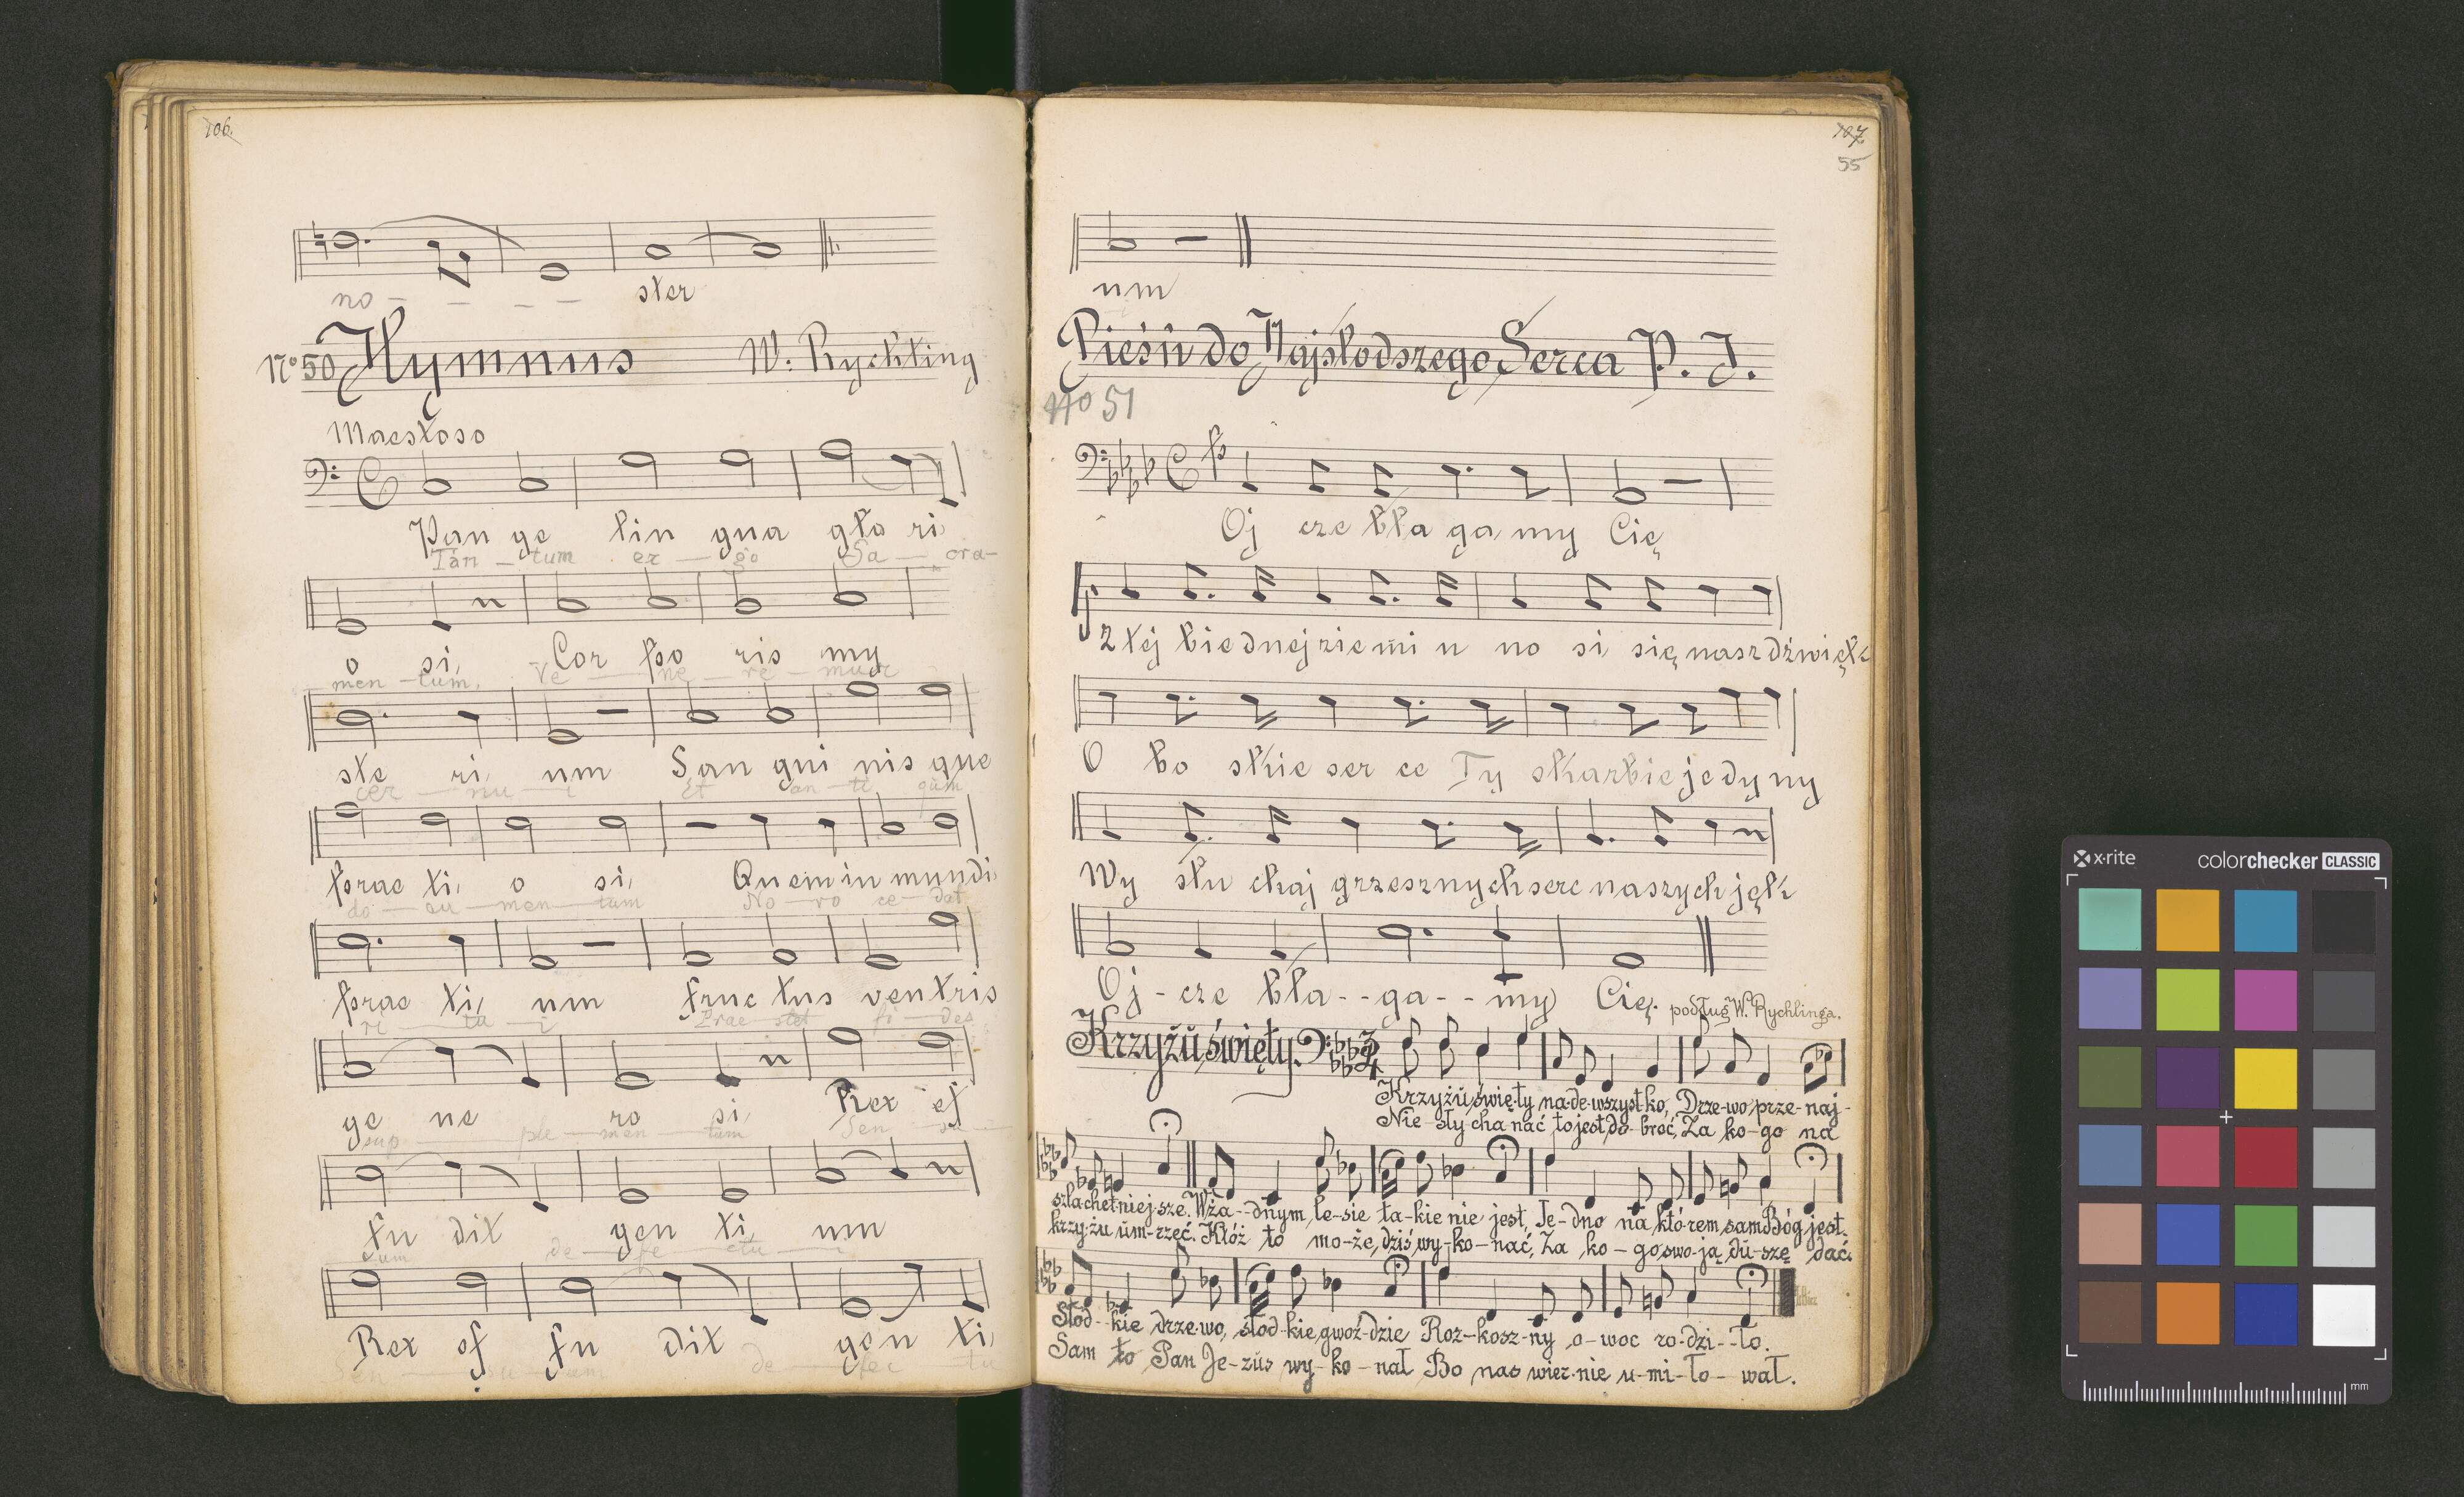 106.
no - - - - ster
No 50 Hymnus W. Rychling
Maestoso
Pan ge lin gua glo ri,
Tan - tum er - go Sa - cra-
o si, Cor po ris my
men - tum, Ve - ne - re - mur
ste ri, um San gui nis que
cer - nu - i Et an - ti quum
prae ti, o si, Quem in mundi,
do - cu - men - tum No - vo ce - dat
prae ti, um fruc tus ventris
ri - tu - i Prae stet fi - des
ge ne ro si, Rex ef
sup - ple - men - tum Sen - su -
fu dit gen ti, um
um de - fe - ctu - i
Rex ef fu dit gen ti,
Sen - su - um de - fec - tu
107
55
um
Pieśń do Najsłodszego Serca P. J.
No 51
p
Oj cze bła ga my Cię
z tej biednej ziemi u no si się nasz dźwięk
O bo skie ser ce Ty skarbie jedyny
Wy słu chaj grzesznych serc naszych jęk
Oj - cze bła - - ga - - my Cię. podług W. Rychlinga.
Krzyżu, święty. 3/4
Krzyżu, świę-ty na-de-wszyst-ko, Drze-wo prze-naj-
Nie-sły-cha nać to jest, do-broć, Za ko-go na
szlachet-niej-sze. W ża--dnym, le-sie ta-kie nie jest, Je-dno na któ-rem sam Bóg jest.
krzy-żu um-rzeć. Któż to mo-że, dziś wy-ko-nać, Za ko-go swo-ją du-szę dać.
Słod--kie drze-wo, słod-kie gwoź-dzie Roz-kosz-ny o-woc ro-dzi--ło.
Sam to Pan Je-zus wy-ko-nał Bo nas wier-nie u-mi-ło-wał.
x-rite colorchecker CLASSIC
mm